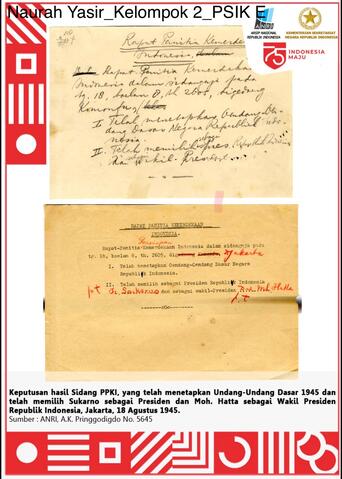 Naurah Yasir_Kelompok 2_PSIK E
ARSIP NASIONAL
REPUBLIK INDONESIA
KEMENTERIAN SEKRETARIAT
NEGARA REPUBLIK INDONESIA
75
INDONESIA
MAJU
Rapat Panitia Kemerdekaan
Indonesia
Rapat Panitia Kemerdekaan
Indonesia dalam sidangnja pada
tg. 18, boelan 8, th. 2605, digedong
I. Telah menetapkan Undang-Un-
dang Dasar Negara Republik Indo-
nesia.
II. Telah memilih
dan Wakil-Presiden
PANITIA KEMERDEKAAN
INDONESIA.
Persiapan
Rapat-Panitia-Kemerdekaan Indonesia dalam sidangnja pada
tg. 18, boelan 8, th. 2605, Djakarta
I. Telah menetapkan Oendang-Oendang Dasar Negara
Republik Indonesia.
II. Telah memilih sebagai Presiden Republik Indonesia
p.t. Ir. Soekarno dan sebagai wakil-Presiden Drs. Moh. Hatta
Keputusan hasil Sidang PPKI, yang telah menetapkan Undang-Undang Dasar 1945 dan
telah memilih Sukarno sebagai Presiden dan Moh. Hatta sebagai Wakil Presiden
Republik Indonesia, Jakarta, 18 Agustus 1945.
Sumber : ANRI, A.K. Pringgodigdo No. 5645